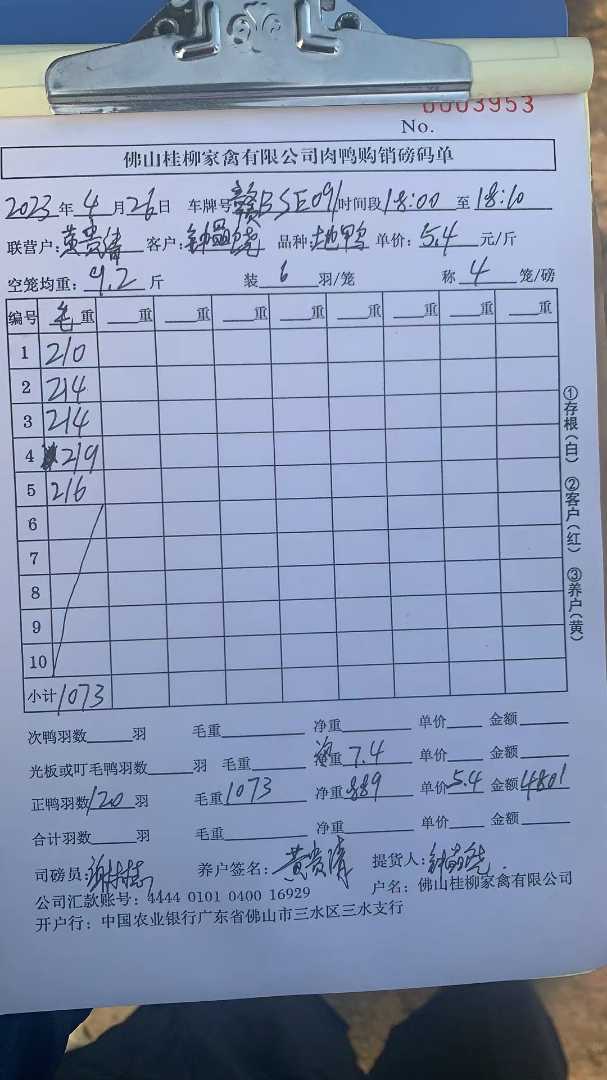 0003953
No.
佛山桂柳家禽有限公司肉鸭购销磅码单
2023年4月26日 车牌号赣BSE091时间段18:00至18:10
联营户:黄贵清 客户:钟 品种:地鸭 单价:5.4元/斤
空笼均重:9.2斤 装6羽/笼 称4笼/磅
编号 毛重 重 重 重 重 重 重 重 重
1 210
2 214
3 214
4 219
5 216
6
7
8
9
10
小计 1073
①存根(白) ②客户(红) ③养户(黄)
次鸭羽数 羽 毛重 净重 单价 金额
光板或叮毛鸭羽数 羽 毛重 重7.4 单价 金额
正鸭羽数120羽 毛重1073 净重889 单价5.4 金额4801
合计羽数 羽 毛重 净重 单价 金额
司磅员: 养户签名:黄贵清 提货人:钟
公司汇款账号:4444 0101 0400 16929 户名:佛山桂柳家禽有限公司
开户行:中国农业银行广东省佛山市三水区三水支行